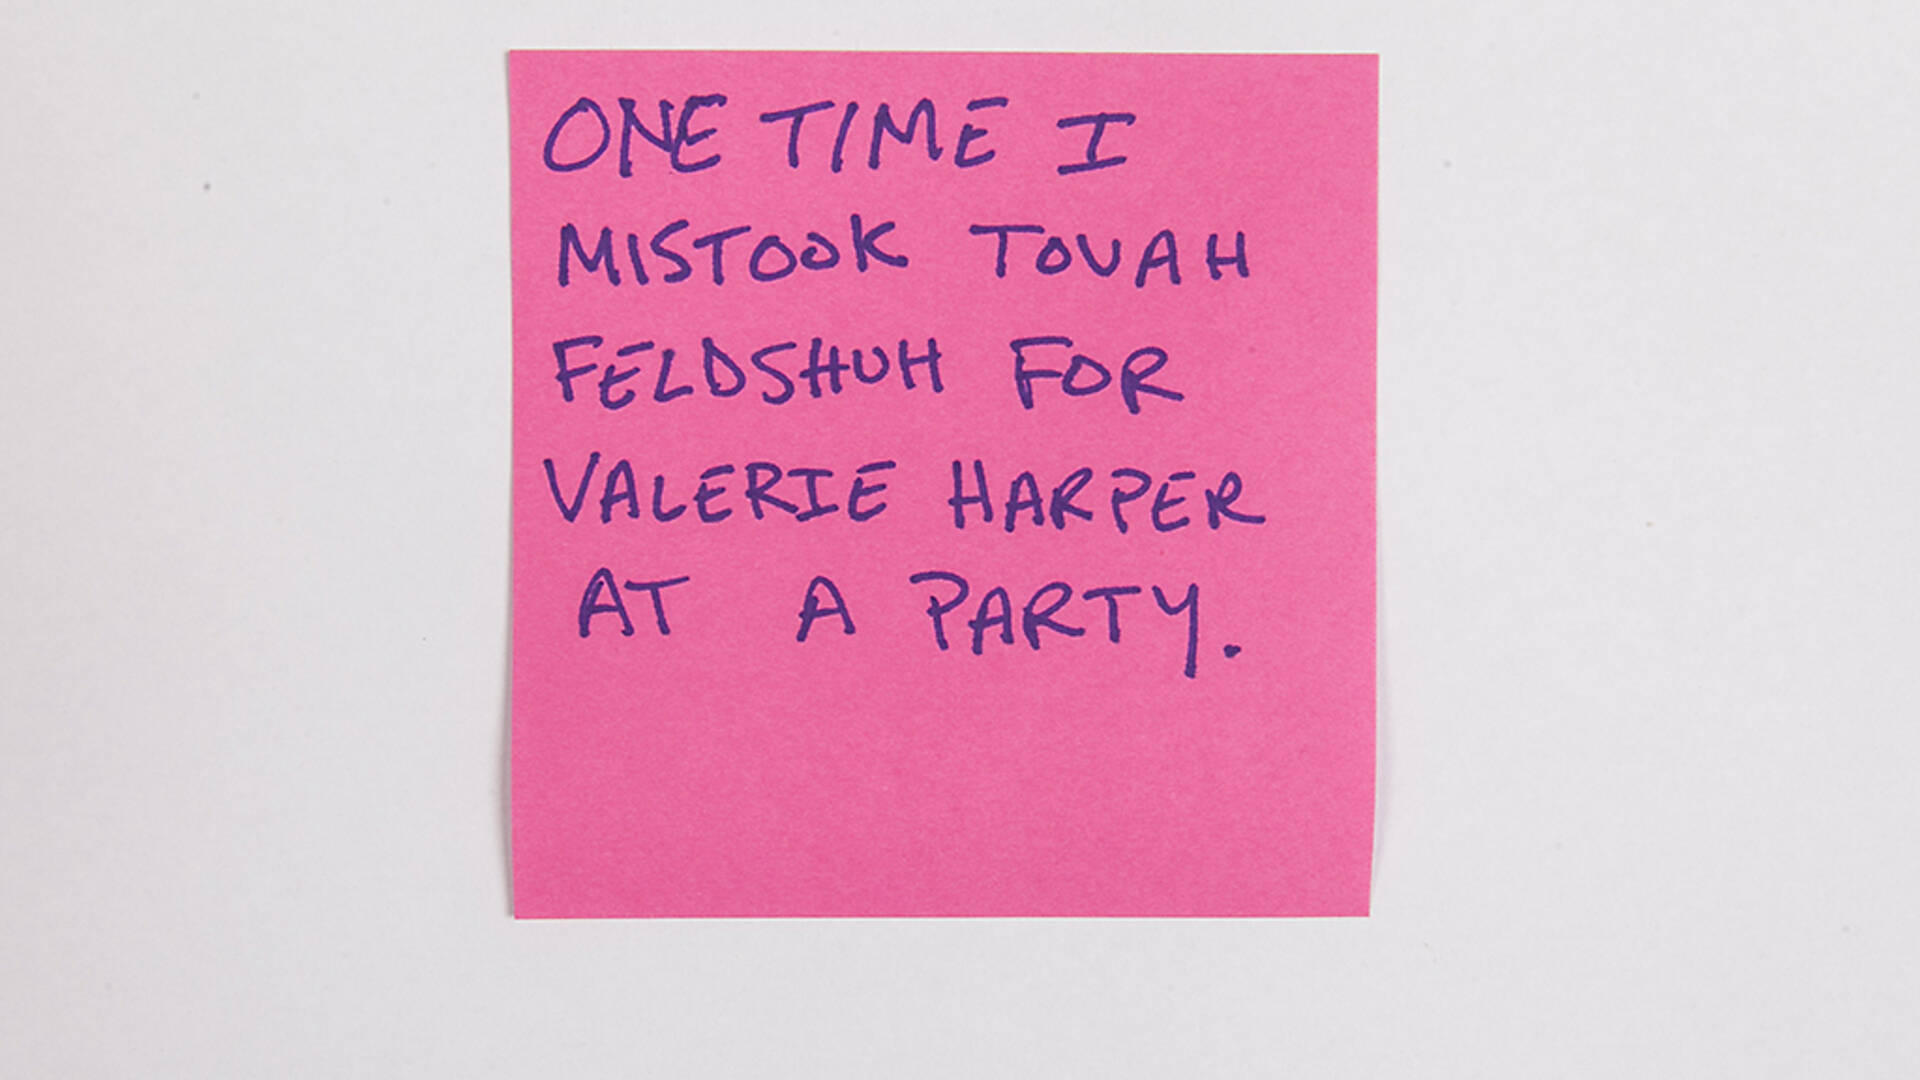 ONE TIME I
MISTOOK TOVAH
FELDSHUH FOR
VALERIE HARPER
AT A PARTY.